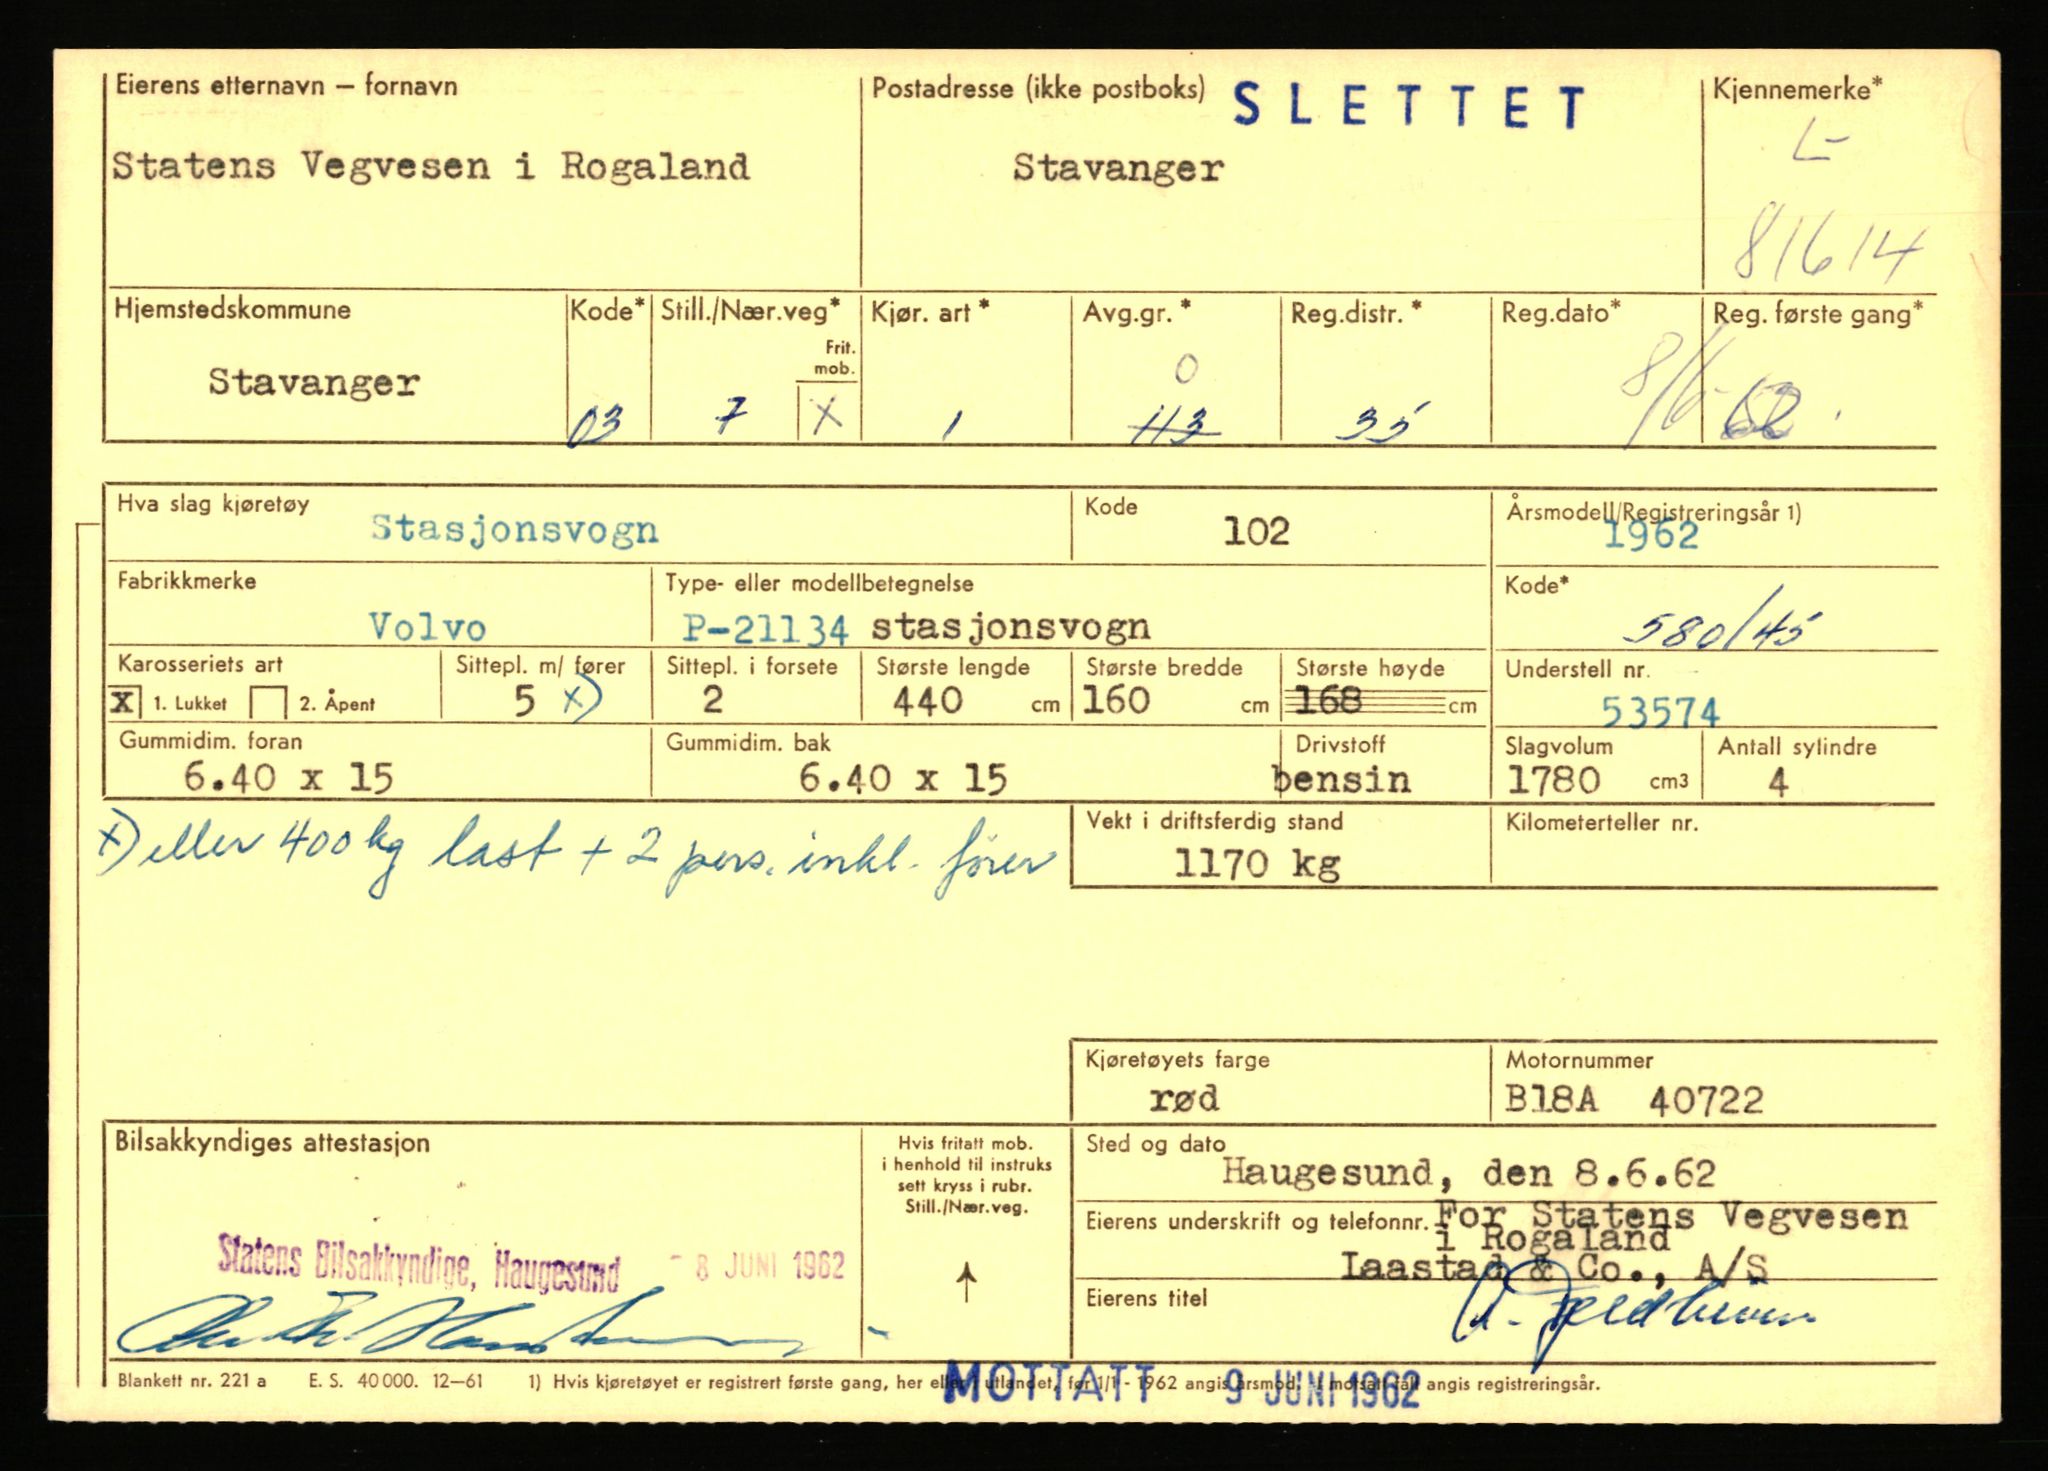 Eierens etternavn – fornavn
Statens Vegvesen i Rogaland
Postadresse (ikke postboks)
SLETTET
Stavanger
Kjennemerke*
L-
81614
Hjemstedskommune
Stavanger
Kode*
03
Still./Nær.veg*
7
Frit.
mob.
X
Kjør. art *
1
Avg.gr. *
0
113
Reg.distr. *
35
Reg.dato*
8/6-62.
Reg. første gang*
Hva slag kjøretøy
Stasjonsvogn
Kode
102
Årsmodell/Registreringsår 1)
1962
Fabrikkmerke
Volvo
Type- eller modellbetegnelse
P-21134 stasjonsvogn
Kode*
580/45
Karosseriets art
X 1. Lukket 2. Åpent
Sittepl. m/ fører
5 x)
Sittepl. i forsete
2
Største lengde
440 cm
Største bredde
160 cm
Største høyde
168 cm
Understell nr.
53574
Gummidim. foran
6.40 x 15
Gummidim. bak
6.40 x 15
Drivstoff
bensin
Slagvolum
1780 cm3
Antall sylindre
4
x) eller 400 kg last + 2 pers. inkl. fører
Vekt i driftsferdig stand
1170 kg
Kilometerteller nr.
Kjøretøyets farge
rød
Motornummer
B18A 40722
Bilsakkyndiges attestasjon
Statens Bilsakkyndige, Haugesund - 8 JUNI 1962
Hvis fritatt mob.
i henhold til instruks
sett kryss i rubr.
Still./Nær.veg.
Sted og dato
Haugesund, den 8.6.62
Eierens underskrift og telefonnr.
For Statens Vegvesen
i Rogaland
Laastad & Co., A/S
Eierens titel
Blankett nr. 221 a E. S. 40 000. 12–61 1) Hvis kjøretøyet er registrert første gang, her eller i utlandet, før 1/1 - 1962 angis årsmod. I motsatt fall angis registreringsår.
MOTTATT 9 JUNI 1962